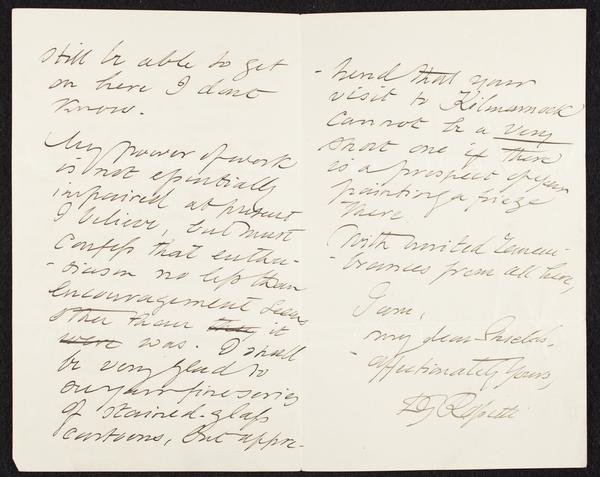 still be able to get
on here I dont
know.
My power of work
is not essentially
impaired at present
I believe, but must
confess that enthu-
-siasm no less than
encouragement seems
other than they it
were was. I shall
be very glad to
see your fine series
of stained-glass
cartoons, but appre-
-hend that your
visit to Kilmarnock
cannot be a very
short one if there
is a prospect of your
painting a frieze
there.
With united remem-
-brances from all here,
I am,
my dear Shields,
affectionately yours,
DG Rossetti